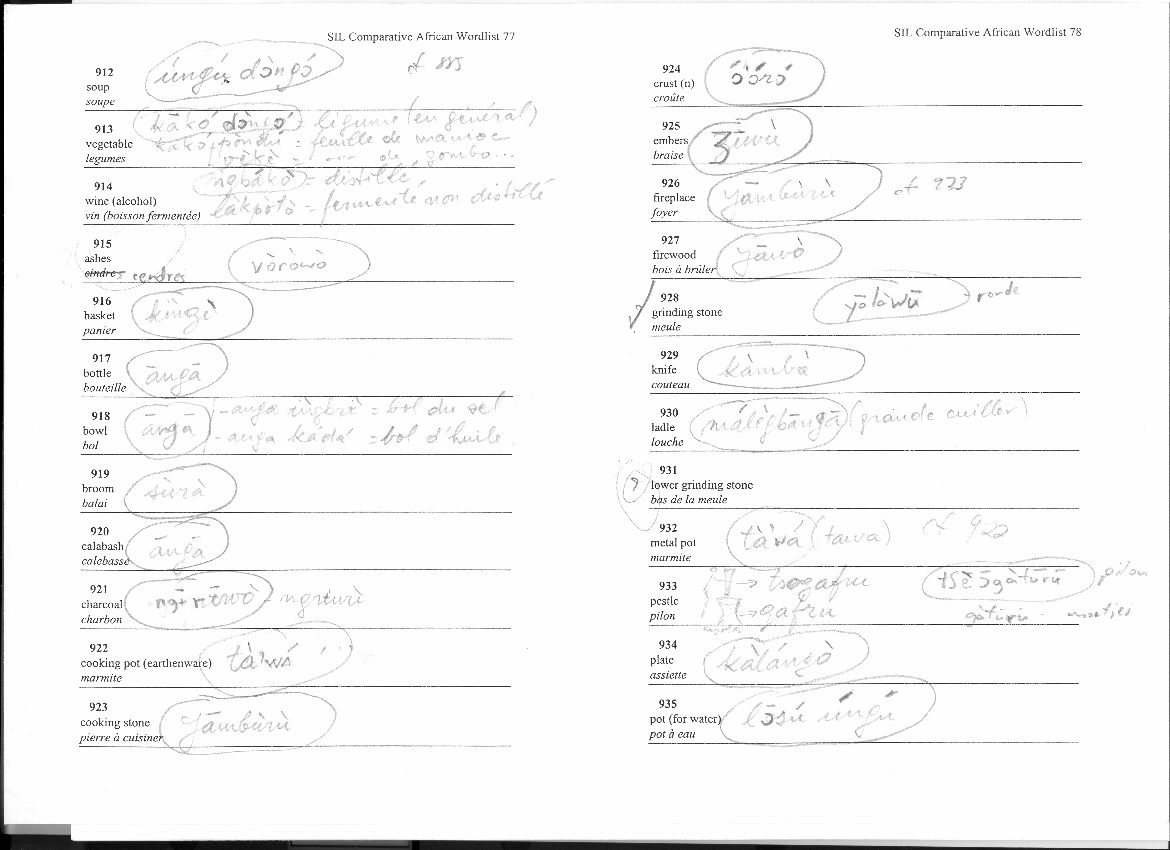 SIL Comparative African Wordlist 77
912
soup
soupe
úngú dòngó
cf 885
913
vegetable
legumes
kākó dòngó = légume (en général)
kākó pòndú = feuille de manioc
vèkè = --- de gombo...
914
wine (alcohol)
vin (boisson fermentée)
ngbákò = distillé
làkpòtò = fermenté non distillé
915
ashes
cendres
vòròwò
916
basket
panier
kìngì
917
bottle
bouteille
āngā
918
bowl
bol
āngā
- anga ìngbìì = bol du sel
- anga kádá = bol d'huile
919
broom
balai
sùrà
920
calabash
calebasse
āngā
921
charcoal
charbon
- ngıturì
922
cooking pot (earthenware)
marmite
tà'wá
923
cooking stone
pierre à cuisiner
yāmbùrù
SIL Comparative African Wordlist 78
924
crust (n)
croûte
925
embers
braise
926
fireplace
foyer
yāmbùrù
cf 923
927
firewood
bois à brûler
yāwò
928
grinding stone
meule
yōlòwū
ronde
929
knife
couteau
kàmbà
930
ladle
louche
málègbāngā (grande cuiller)
931
lower grinding stone
bas de la meule
?
932
metal pot
marmite
tà'wá (tawa)
cf 922
933
pestle
pilon
→ tsogafru
→ gafru
tsè ɔ̄gàtūrū
pilon
934
plate
assiette
kàlángò
935
pot (for water)
pot à eau
lɔ̄sú úngú